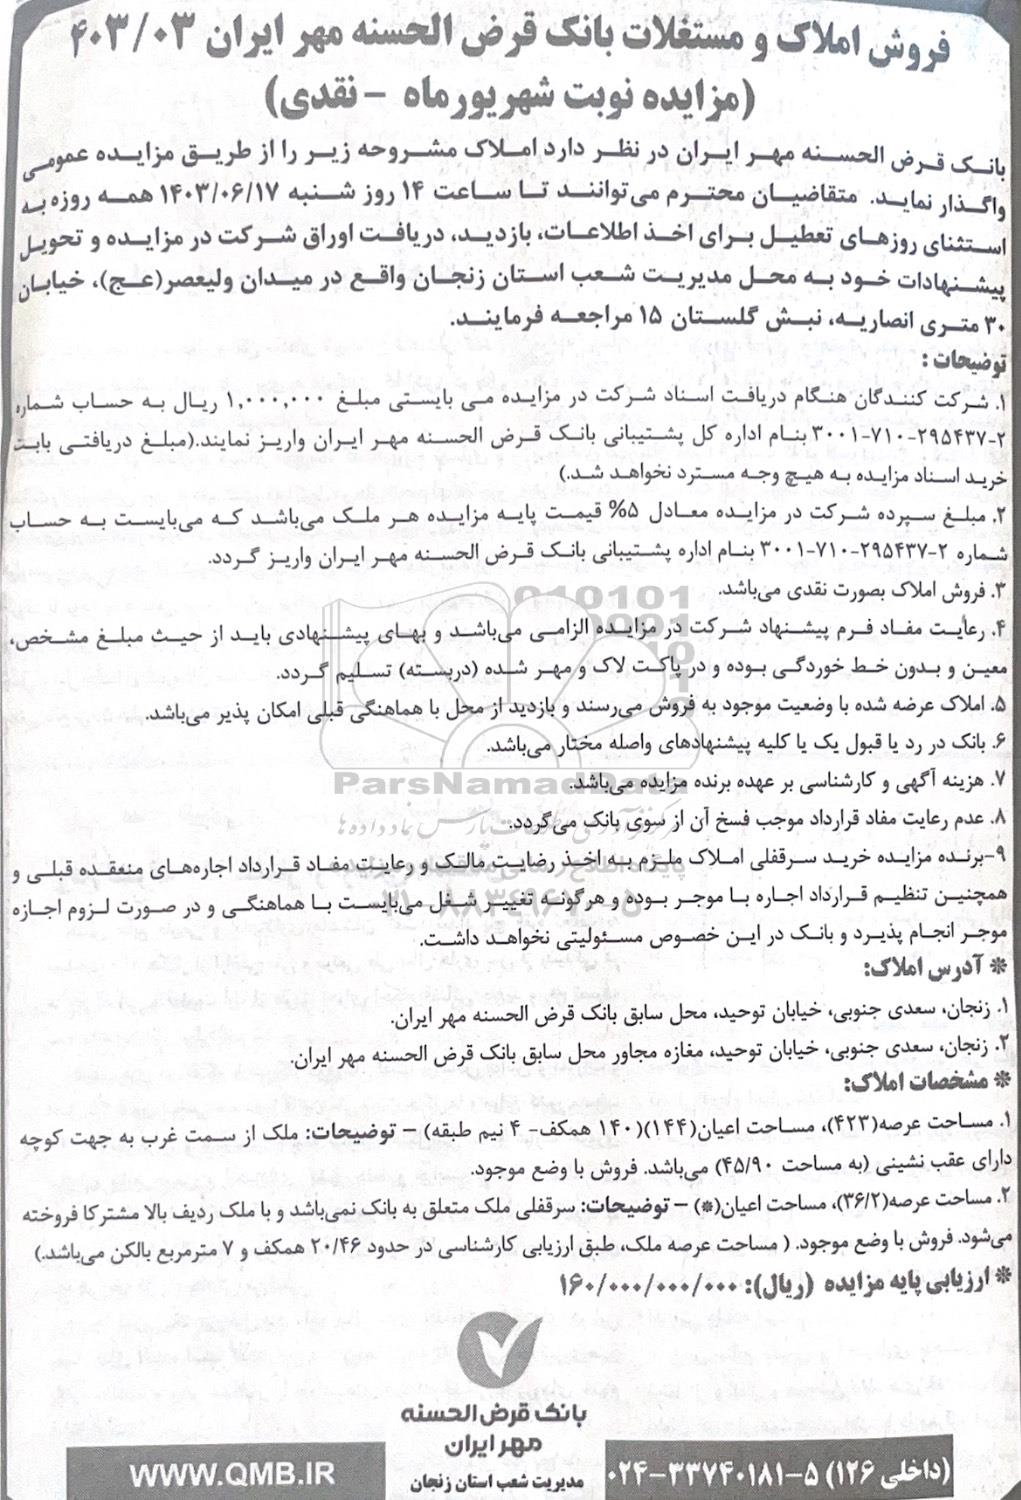 فروش املاک و مستغلات بانک قرض الحسنه مهر ایران ۴۰۳/۰۳
(مزایده نوبت شهریورماه - نقدی)
بانک قرض الحسنه مهر ایران در نظر دارد املاک مشروحه زیر را از طریق مزایده عمومی
واگذار نماید. متقاضیان محترم می‌توانند تا ساعت ۱۴ روز شنبه ۱۴۰۳/۰۶/۱۷ همه روزه به
استثنای روزهای تعطیل برای اخذ اطلاعات، بازدید، دریافت اوراق شرکت در مزایده و تحویل
پیشنهادات خود به محل مدیریت شعب استان زنجان واقع در میدان ولیعصر(عج)، خیابان
۳۰ متری انصاریه، نبش گلستان ۱۵ مراجعه فرمایند.
توضیحات :
۱. شرکت کنندگان هنگام دریافت اسناد شرکت در مزایده می بایستی مبلغ ۱,۰۰۰,۰۰۰ ریال به حساب شماره
۳۰۰۱-۷۱۰-۲۹۵۴۳۷-۲ بنام اداره کل پشتیبانی بانک قرض الحسنه مهر ایران واریز نمایند.(مبلغ دریافتی بابت
خرید اسناد مزایده به هیچ وجه مسترد نخواهد شد.)
۲. مبلغ سپرده شرکت در مزایده معادل ۵% قیمت پایه مزایده هر ملک می‌باشد که می‌بایست به حساب
شماره ۳۰۰۱-۷۱۰-۲۹۵۴۳۷-۲ بنام اداره پشتیبانی بانک قرض الحسنه مهر ایران واریز گردد.
۳. فروش املاک بصورت نقدی می‌باشد.
۴. رعایت مفاد فرم پیشنهاد شرکت در مزایده الزامی می‌باشد و بهای پیشنهادی باید از حیث مبلغ مشخص،
معین و بدون خط خوردگی بوده و در پاکت لاک و مهر شده (دربسته) تسلیم گردد.
۵. املاک عرضه شده با وضعیت موجود به فروش می‌رسند و بازدید از محل با هماهنگی قبلی امکان پذیر می‌باشد.
۶. بانک در رد یا قبول یک یا کلیه پیشنهادهای واصله مختار می‌باشد.
ParsNamadData
۷. هزینه آگهی و کارشناسی بر عهده برنده مزایده می‌باشد.
۸. عدم رعایت مفاد قرارداد موجب فسخ آن از سوی بانک می‌گردد.
۹-برنده مزایده خرید سرقفلی املاک ملزم به اخذ رضایت مالک و رعایت مفاد قرارداد اجاره‌های منعقده قبلی و
همچنین تنظیم قرارداد اجاره با موجر بوده و هرگونه تغییر شغل می‌بایست با هماهنگی و در صورت لزوم اجازه
موجر انجام پذیرد و بانک در این خصوص مسئولیتی نخواهد داشت.
* آدرس املاک:
۱. زنجان، سعدی جنوبی، خیابان توحید، محل سابق بانک قرض الحسنه مهر ایران.
۲. زنجان، سعدی جنوبی، خیابان توحید، مغازه مجاور محل سابق بانک قرض الحسنه مهر ایران.
* مشخصات املاک:
۱. مساحت عرصه(۴۲۳)، مساحت اعیان(۱۴۴)(۱۴۰ همکف- ۴ نیم طبقه) – توضیحات: ملک از سمت غرب به جهت کوچه
دارای عقب نشینی (به مساحت ۴۵/۹۰) می‌باشد. فروش با وضع موجود.
۲. مساحت عرصه(۳۶/۲)، مساحت اعیان(*) – توضیحات: سرقفلی ملک متعلق به بانک نمی‌باشد و با ملک ردیف بالا مشترکا فروخته
می‌شود. فروش با وضع موجود. ( مساحت عرصه ملک، طبق ارزیابی کارشناسی در حدود ۲۰/۴۶ همکف و ۷ مترمربع بالکن می‌باشد.)
* ارزیابی پایه مزایده (ریال): ۱۶۰/۰۰۰/۰۰۰/۰۰۰
بانک قرض الحسنه
مهر ایران
مدیریت شعب استان زنجان
(داخلی ۱۲۶) ۵-۳۳۷۴۰۱۸۱-۰۲۴
WWW.QMB.IR